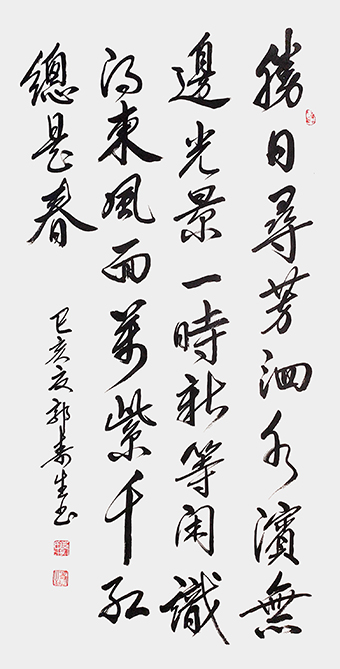 勝日尋芳泗水濱無
邊光景一時新等閑識
得東風面萬紫千紅
總是春
己亥夏郭壽生書